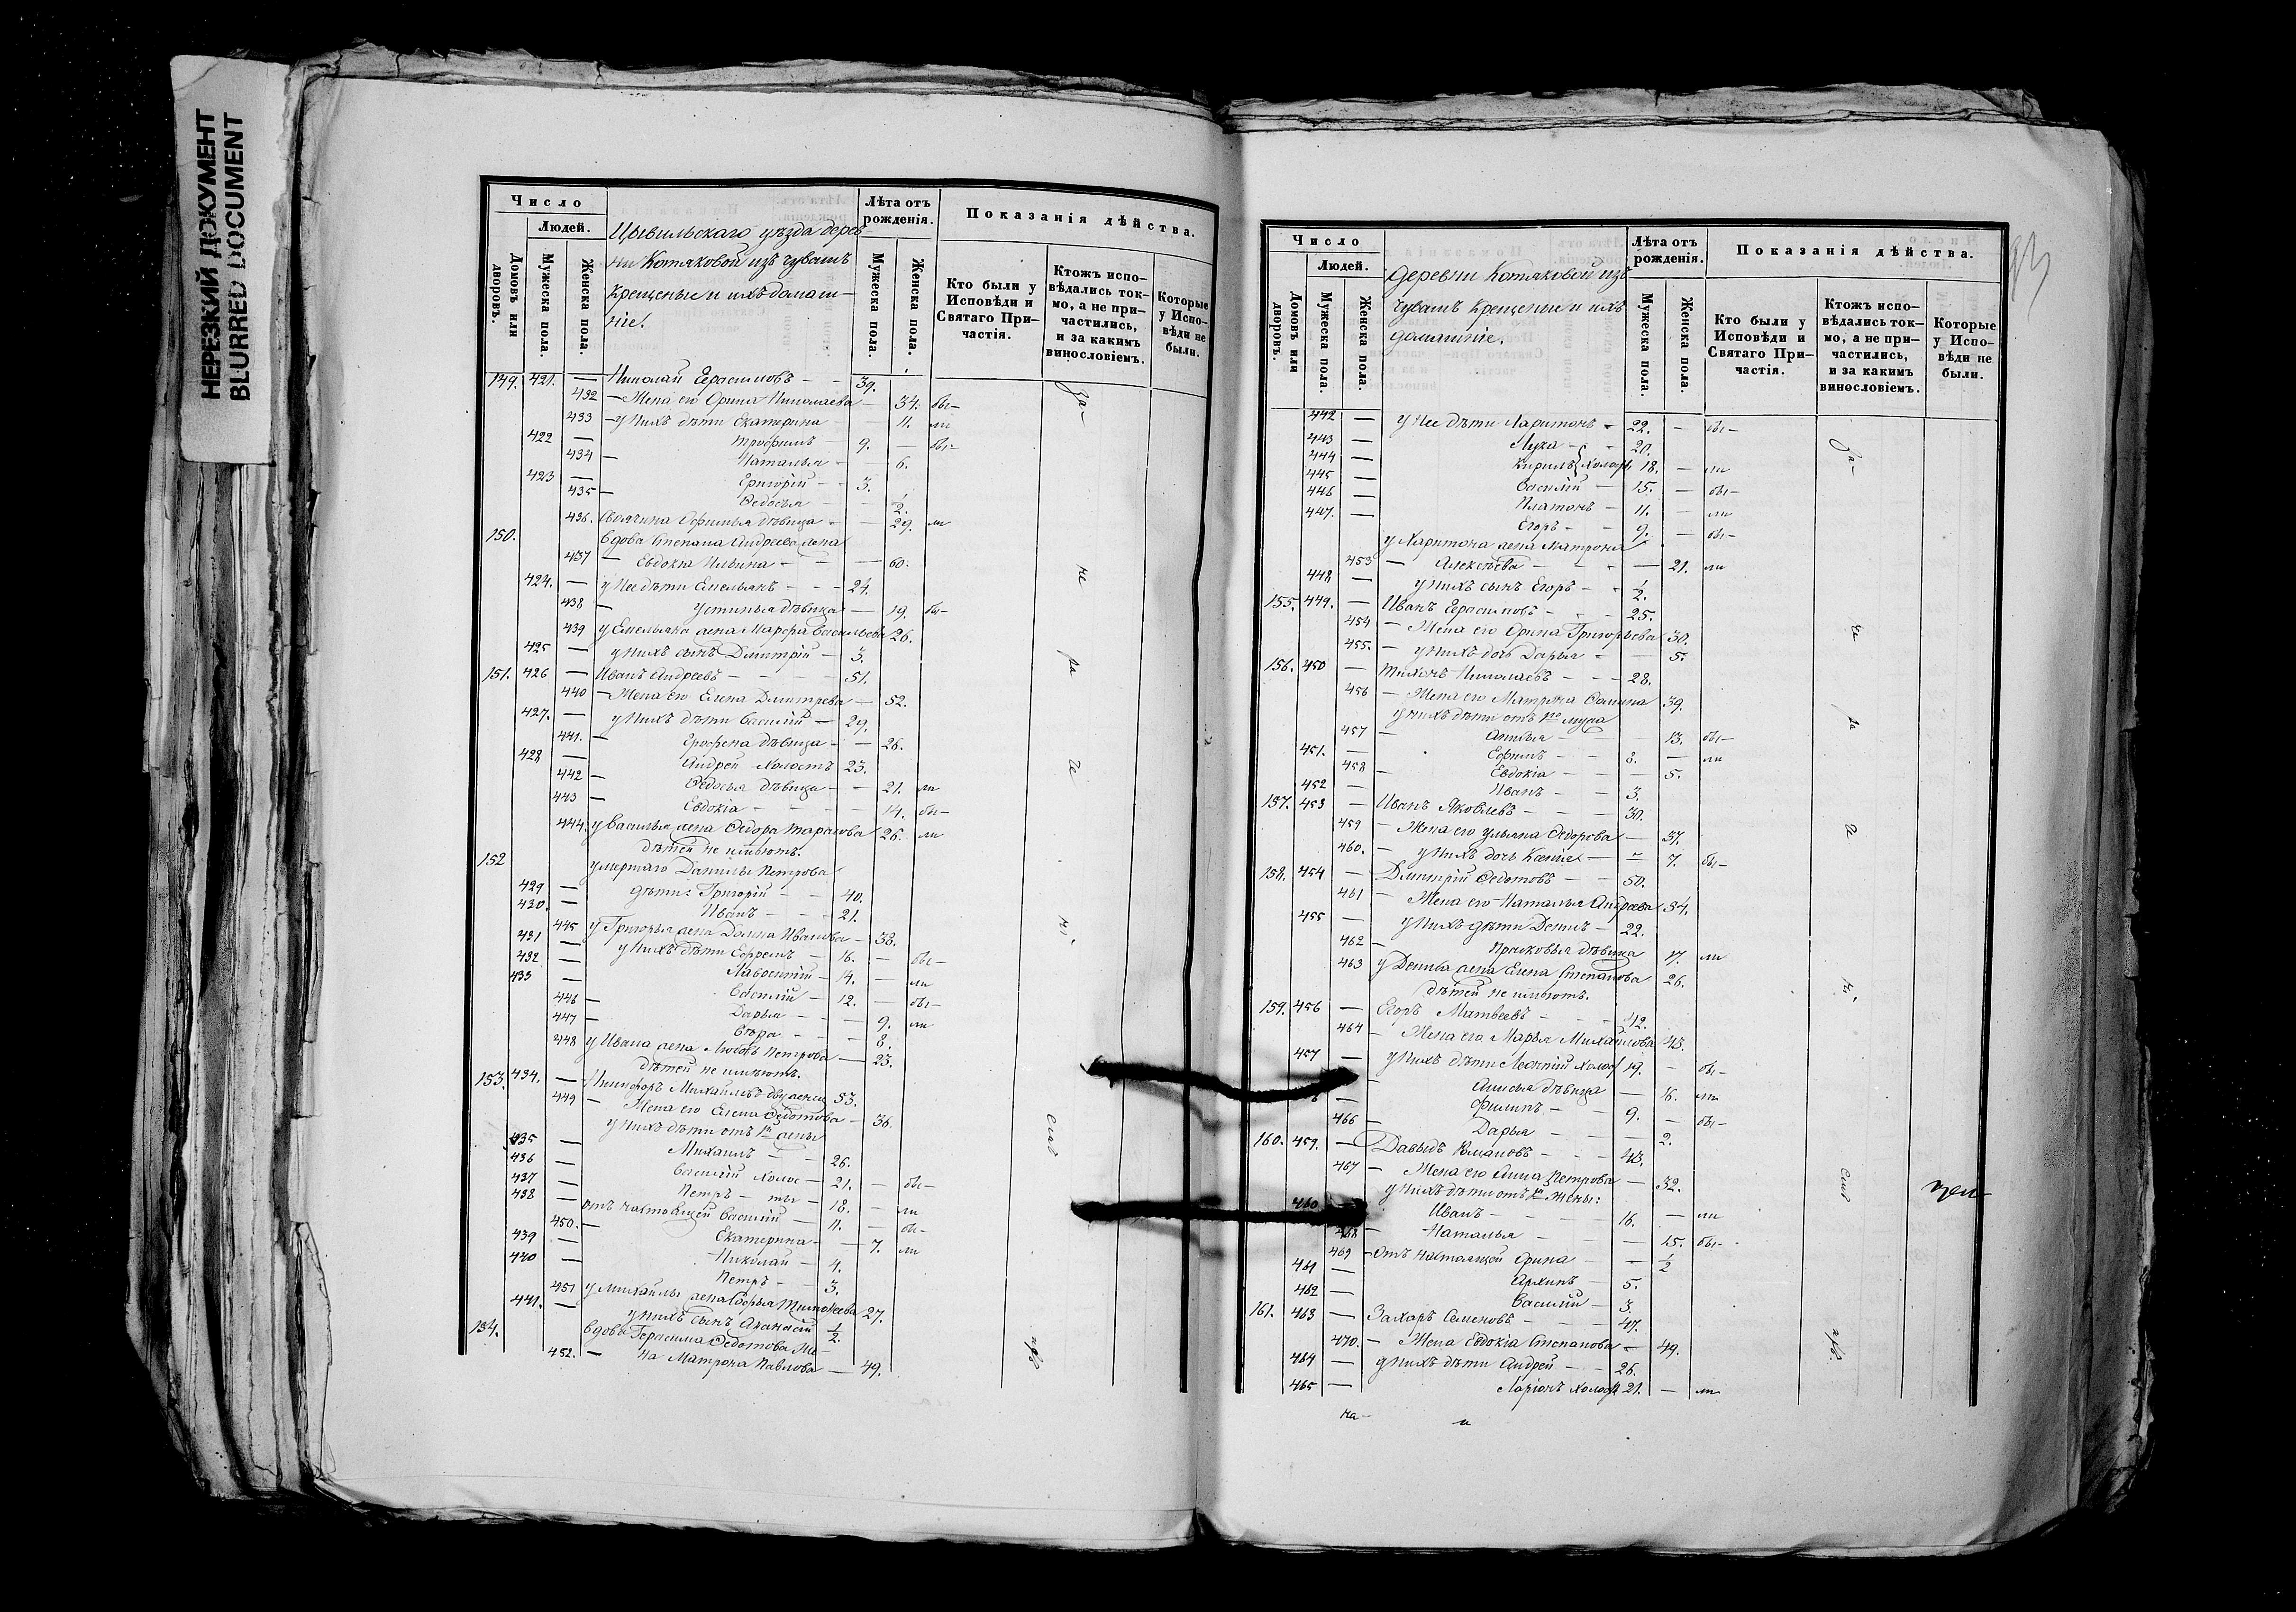 НЕРЕЗКИЙ ДОКУМЕНТ
BLURRED DOCUMENT
Число
Людей.
Домовъ или дворовъ.
Мужеска пола.
Женска пола.
Цывильскаго уѣзда дерев-
ни Котяковой изъ чувашъ
крещеные и ихъ домаш-
ніе.
Лѣта отъ рожденія.
Мужеска пола.
Женска пола.
Показанія дѣйства.
Кто были у Исповѣди и Святаго Причастія.
Ктожъ исповѣдались токмо, а не причастились, и за какимъ винословіемъ.
Которые у Исповѣди не были.
149. 421. — Николай Герасимовъ - - 39.
432 — Жена его Орина Николаева — 34. бы-
433 — у нихъ дѣти Екатерина — 11. ли
422 — Трофимъ — 9. — бы-
434 — Наталья - — 6.
423 — Григорій - - 3.
435 — Федосья — 1/2.
436. Своячина Офимья дѣвица - — 29. ли
150. Вдова Степана Андреева жена
437 — Евдокія Ильина - - — 60.
424. — у нее дѣти Емельянъ - - - 24.
438 — Устинья дѣвица — 19. бы-
439 у Емельяна жена Марфа Васильева 26.
425 — у нихъ сынъ Дмитрій - 3.
151. 426 — Иванъ Андреевъ - - - - 51.
440 — Жена его Елена Дмитрева — 52.
427. — у нихъ дѣти Василій — 29.
441. — дѣвица - — 26.
428 — Андрей холостъ 23.
442 — Федосья дѣвица - - 21. ли
443 — Евдокія - - - - 14. бы-
444. у Василья жена Федора Тарасова 26. ли
дѣтей не имѣютъ.
152 умершаго Данилы Петрова
429 — дѣти: Григорій - - 40.
430. — Иванъ - - - 21.
445 у Григорья жена Домна Иванова — 38.
431 — у нихъ дѣти Ефремъ — 16. — бы-
432 — Лаврентій — 14. — ли
433 — Василій — 12. — бы-
446 — Дарья — — 9. ли
447 — Вѣра - - - 8.
448 у Ивана жена Любовь Петрова — 23.
дѣтей не имѣютъ.
153. 434. — Никифоръ Михайловъ 53.
449 — Жена его Елена Федотова — 36.
у нихъ дѣти отъ 1й жены
435 — Михаилъ - - 26.
436 — Василій холос- 21. — бы-
437 — Петръ - ты - 18. — ли
438 — отъ настоящей Василій — 11. — бы-
450. — Екатерина — 7. ли
439 — Николай — 4.
440 — Петръ - - 3.
451 у Михайлы жена Тимофеева 27.
441. — у нихъ сынъ Афанасій 1/2.
154. Вдова Герасима Федотова же-
452. — на Матрона Павлова — 49.
за-
не
ра
че
ні
Число
Людей.
Домовъ или дворовъ.
Мужеска пола.
Женска пола.
Деревни Котяковой изъ
чувашъ крещеные и ихъ
домашніе.
Лѣта отъ рожденія.
Мужеска пола.
Женска пола.
Показанія дѣйства.
Кто были у Исповѣди и Святаго Причастія.
Ктожъ исповѣдались токмо, а не причастились, и за какимъ винословіемъ.
Которые у Исповѣди не были.
442 — у нее дѣти Харитонъ - 22. — бы-
443 — Лука - - 20.
444 — Кирилъ холост 18. — ли
445 — Василій — 15. — бы-
446 — Платонъ — 11. — ли
447. — Егоръ - - 9. — бы-
у Харитона жена Матрона
453 — Алексѣева - - - 21. ли
448 — у нихъ сынъ Егоръ - - 1/2.
155. 449. — Иванъ Герасимовъ - - - 25.
454 — Жена его Орина Григорьева 30.
455. — у нихъ дочь Дарья - — 5.
156. 450 — Тихонъ Николаевъ - - - 28.
456 — Жена его Матрена 39.
у нихъ дѣти отъ 1го мужа
457 — 13. бы-
451. — Ефимъ - - 8. — ли
458 — Евдокія - - — 5.
452 — Иванъ - - 3.
157. 453 — Иванъ Яковлевъ - - - 30.
459 — Жена его Ульяна Федорова — 37.
460. — у нихъ дочь Ксенія — — 7. бы-
158. 454 — Дмитрій Федотовъ - - 50.
461 — Жена его Наталья Андреева 54.
455 — у нихъ дѣти Денисъ - - 22.
462 — Прасковья дѣвица 17. ли
463 у Дениса жена Елена Степанова 26.
дѣтей не имѣютъ.
159. 456 — Егоръ Матвеевъ - - - 42.
464 — Жена его Марья Михайлова 43.
457 — у нихъ дѣти Леонтій холос 19. — бы-
— Анисья дѣвица — 16. ли
8 — Филипъ - - 9. — бы-
466 — Дарья - - — 2.
160. 459. — Давыдъ Романовъ - - - 43.
467 — Жена его Анна Петрова — 32.
у нихъ дѣти отъ 1й жены:
460 Иванъ - - - - 16. — ли
468 — Наталья - - — 15. бы-
469 — отъ настоящей Орина - - 1/2
461 — Архипъ - 5.
462 — Василій — 3.
161. 463 — Захаръ Семеновъ - - - 47.
470. — Жена Евдокія Степанова - 49.
464 — у нихъ дѣти Андрей - - 26.
465 — Ларіонъ холост 21. — ли
за-
не
ра
че
ні
на- и